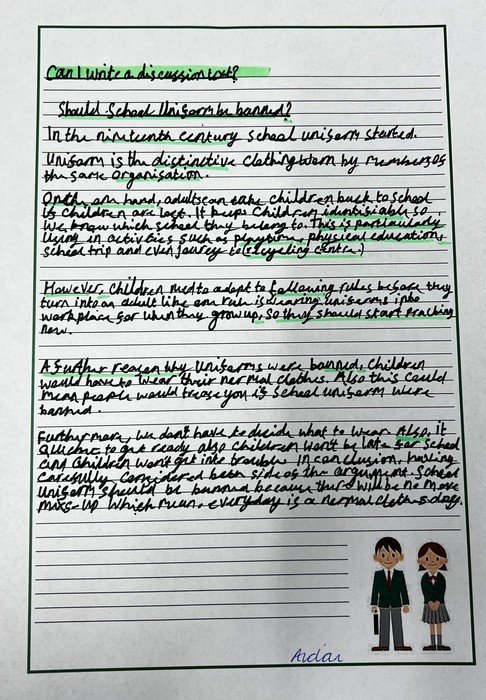 Can I write a discussion text?
Should School Uniform be banned?
In the nineteenth century school uniform started.
Uniform is the distinctive clothing worn by members of
the same organisation.
On the one hand, adults can take children back to school
if children are lost. It keeps children identifiable so
we know which school they belong to. This is particularly
useful in activities such as playtime, physical education,
school trip and even journey to (recycling centre.)
However, children need to adapt to following rules before they
turn into an adult like one rule is wearing uniforms into
workplace for when they grow up, so they should start
now.
A further reason why uniforms were banned, children
would have to wear their normal clothes. Also this could
mean people would you if school uniform were
banned.
Furthermore, we don't have to decide what to wear. Also, it
quicker to get ready also children won't be late for school
and children won't get into trouble. In conclusion, having
carefully considered both side of the argument. School
uniform should be banned because there will be no more
mix-up which mean, everyday is a normal clothes day.
Aidan